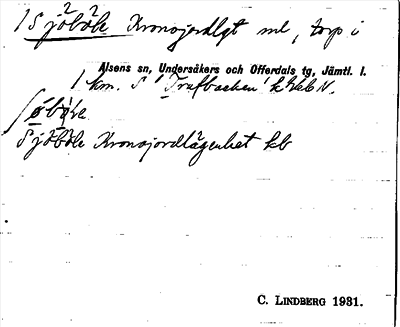 1 Sjöböle Kronojordlgt ml, torp i
Alsens sn, Undersåkers och Offerdals tg, Jämtl. l.
1 km. S
Sjöböle Kronojordlägenhet kb
C. LINDBERG 1931.